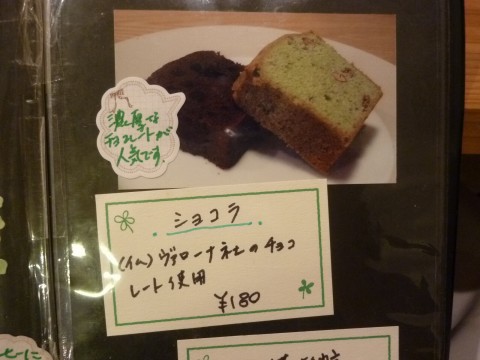 濃厚な
チョコレートが
人気です。
ショコラ
(仏)ヴァローナ社のチョコ
レート使用
¥180
ヒーに